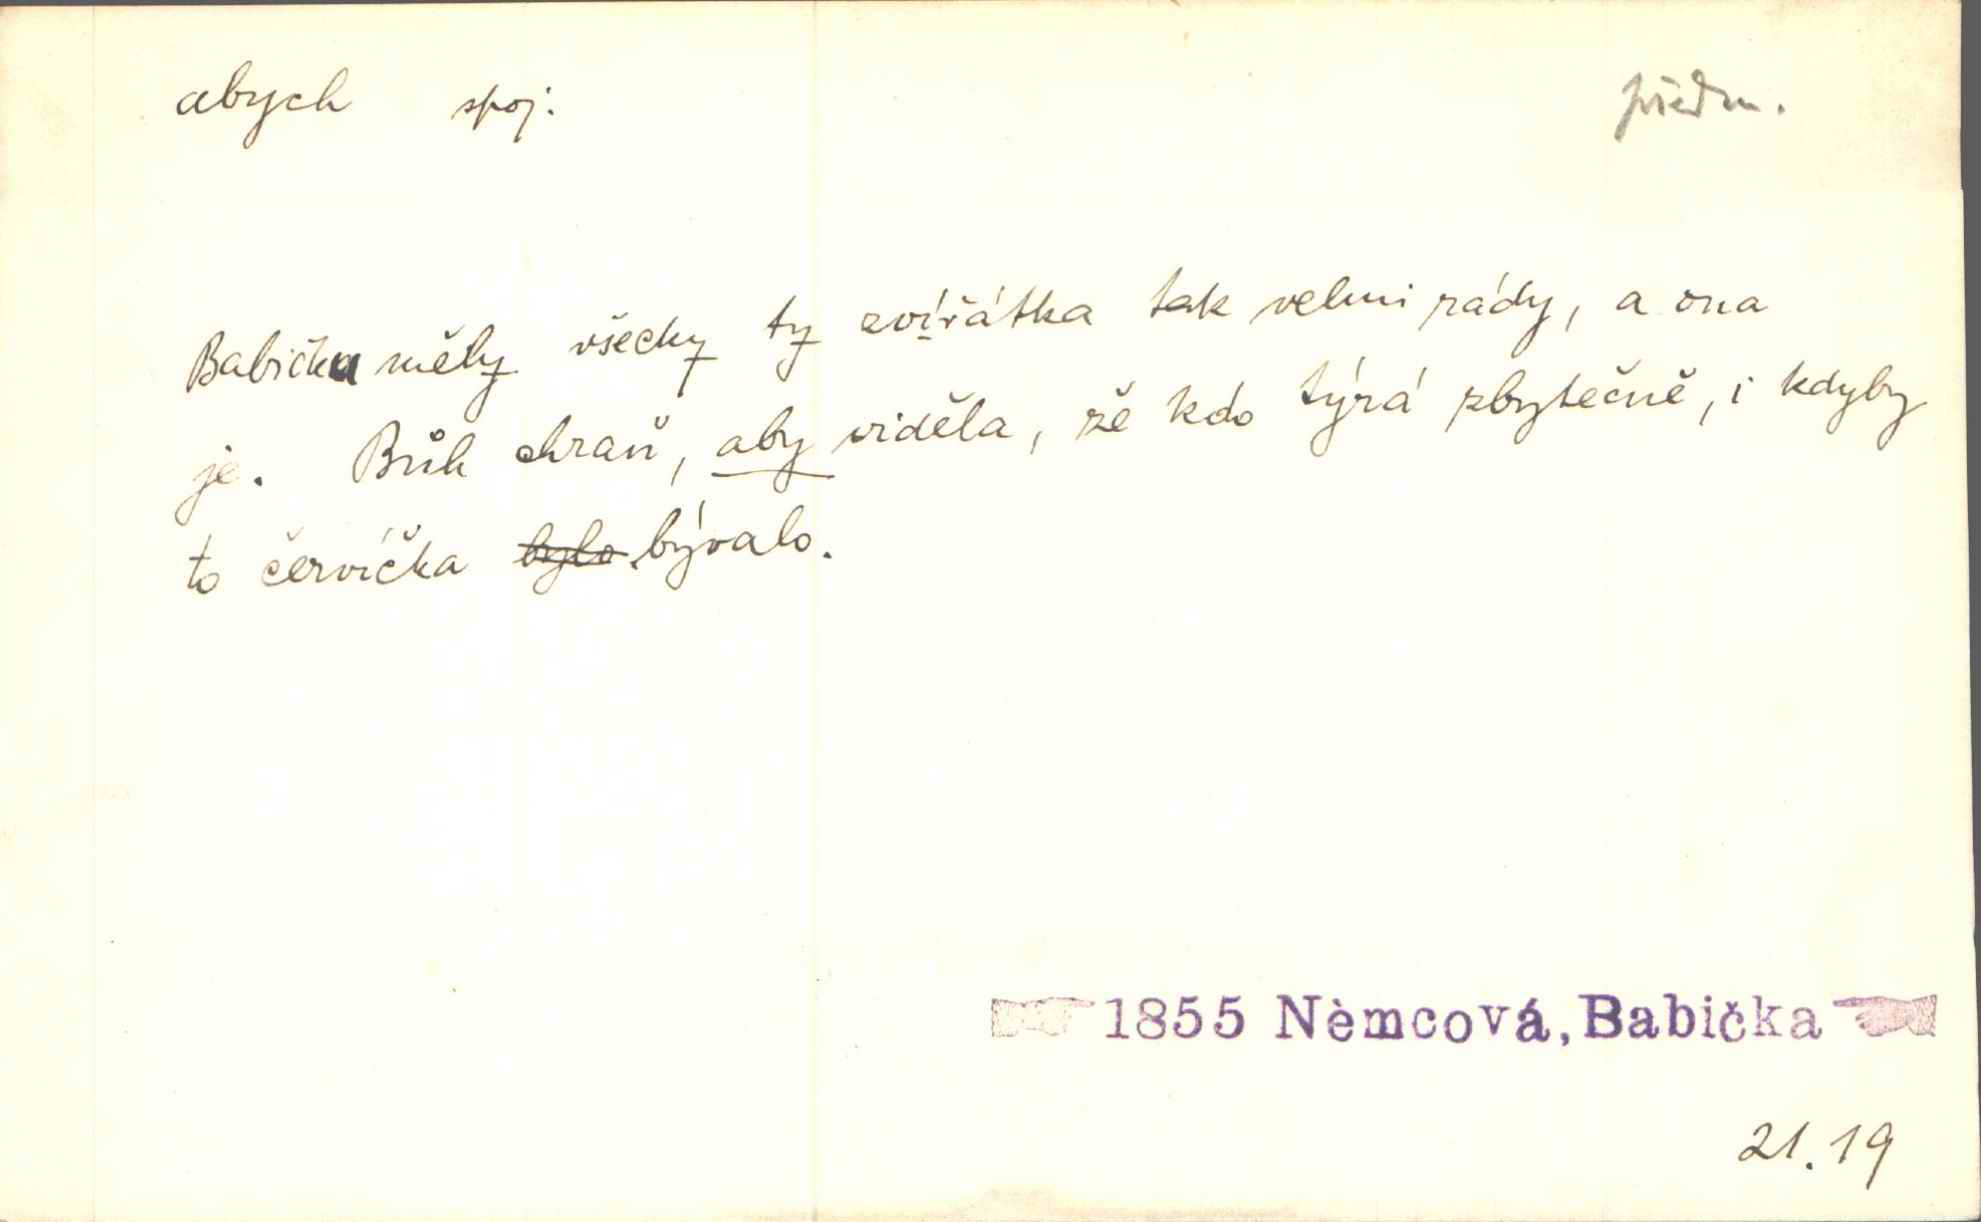 abych spoj. předm.
Babičku měly všecky ty zvířátka tak velmi rády, a ona
je. Bůh chraň, aby viděla, že kdo týrá zbytečně, i kdyby
to červíčka bylo bývalo.
1855 Nèmcová, Babička
21.19